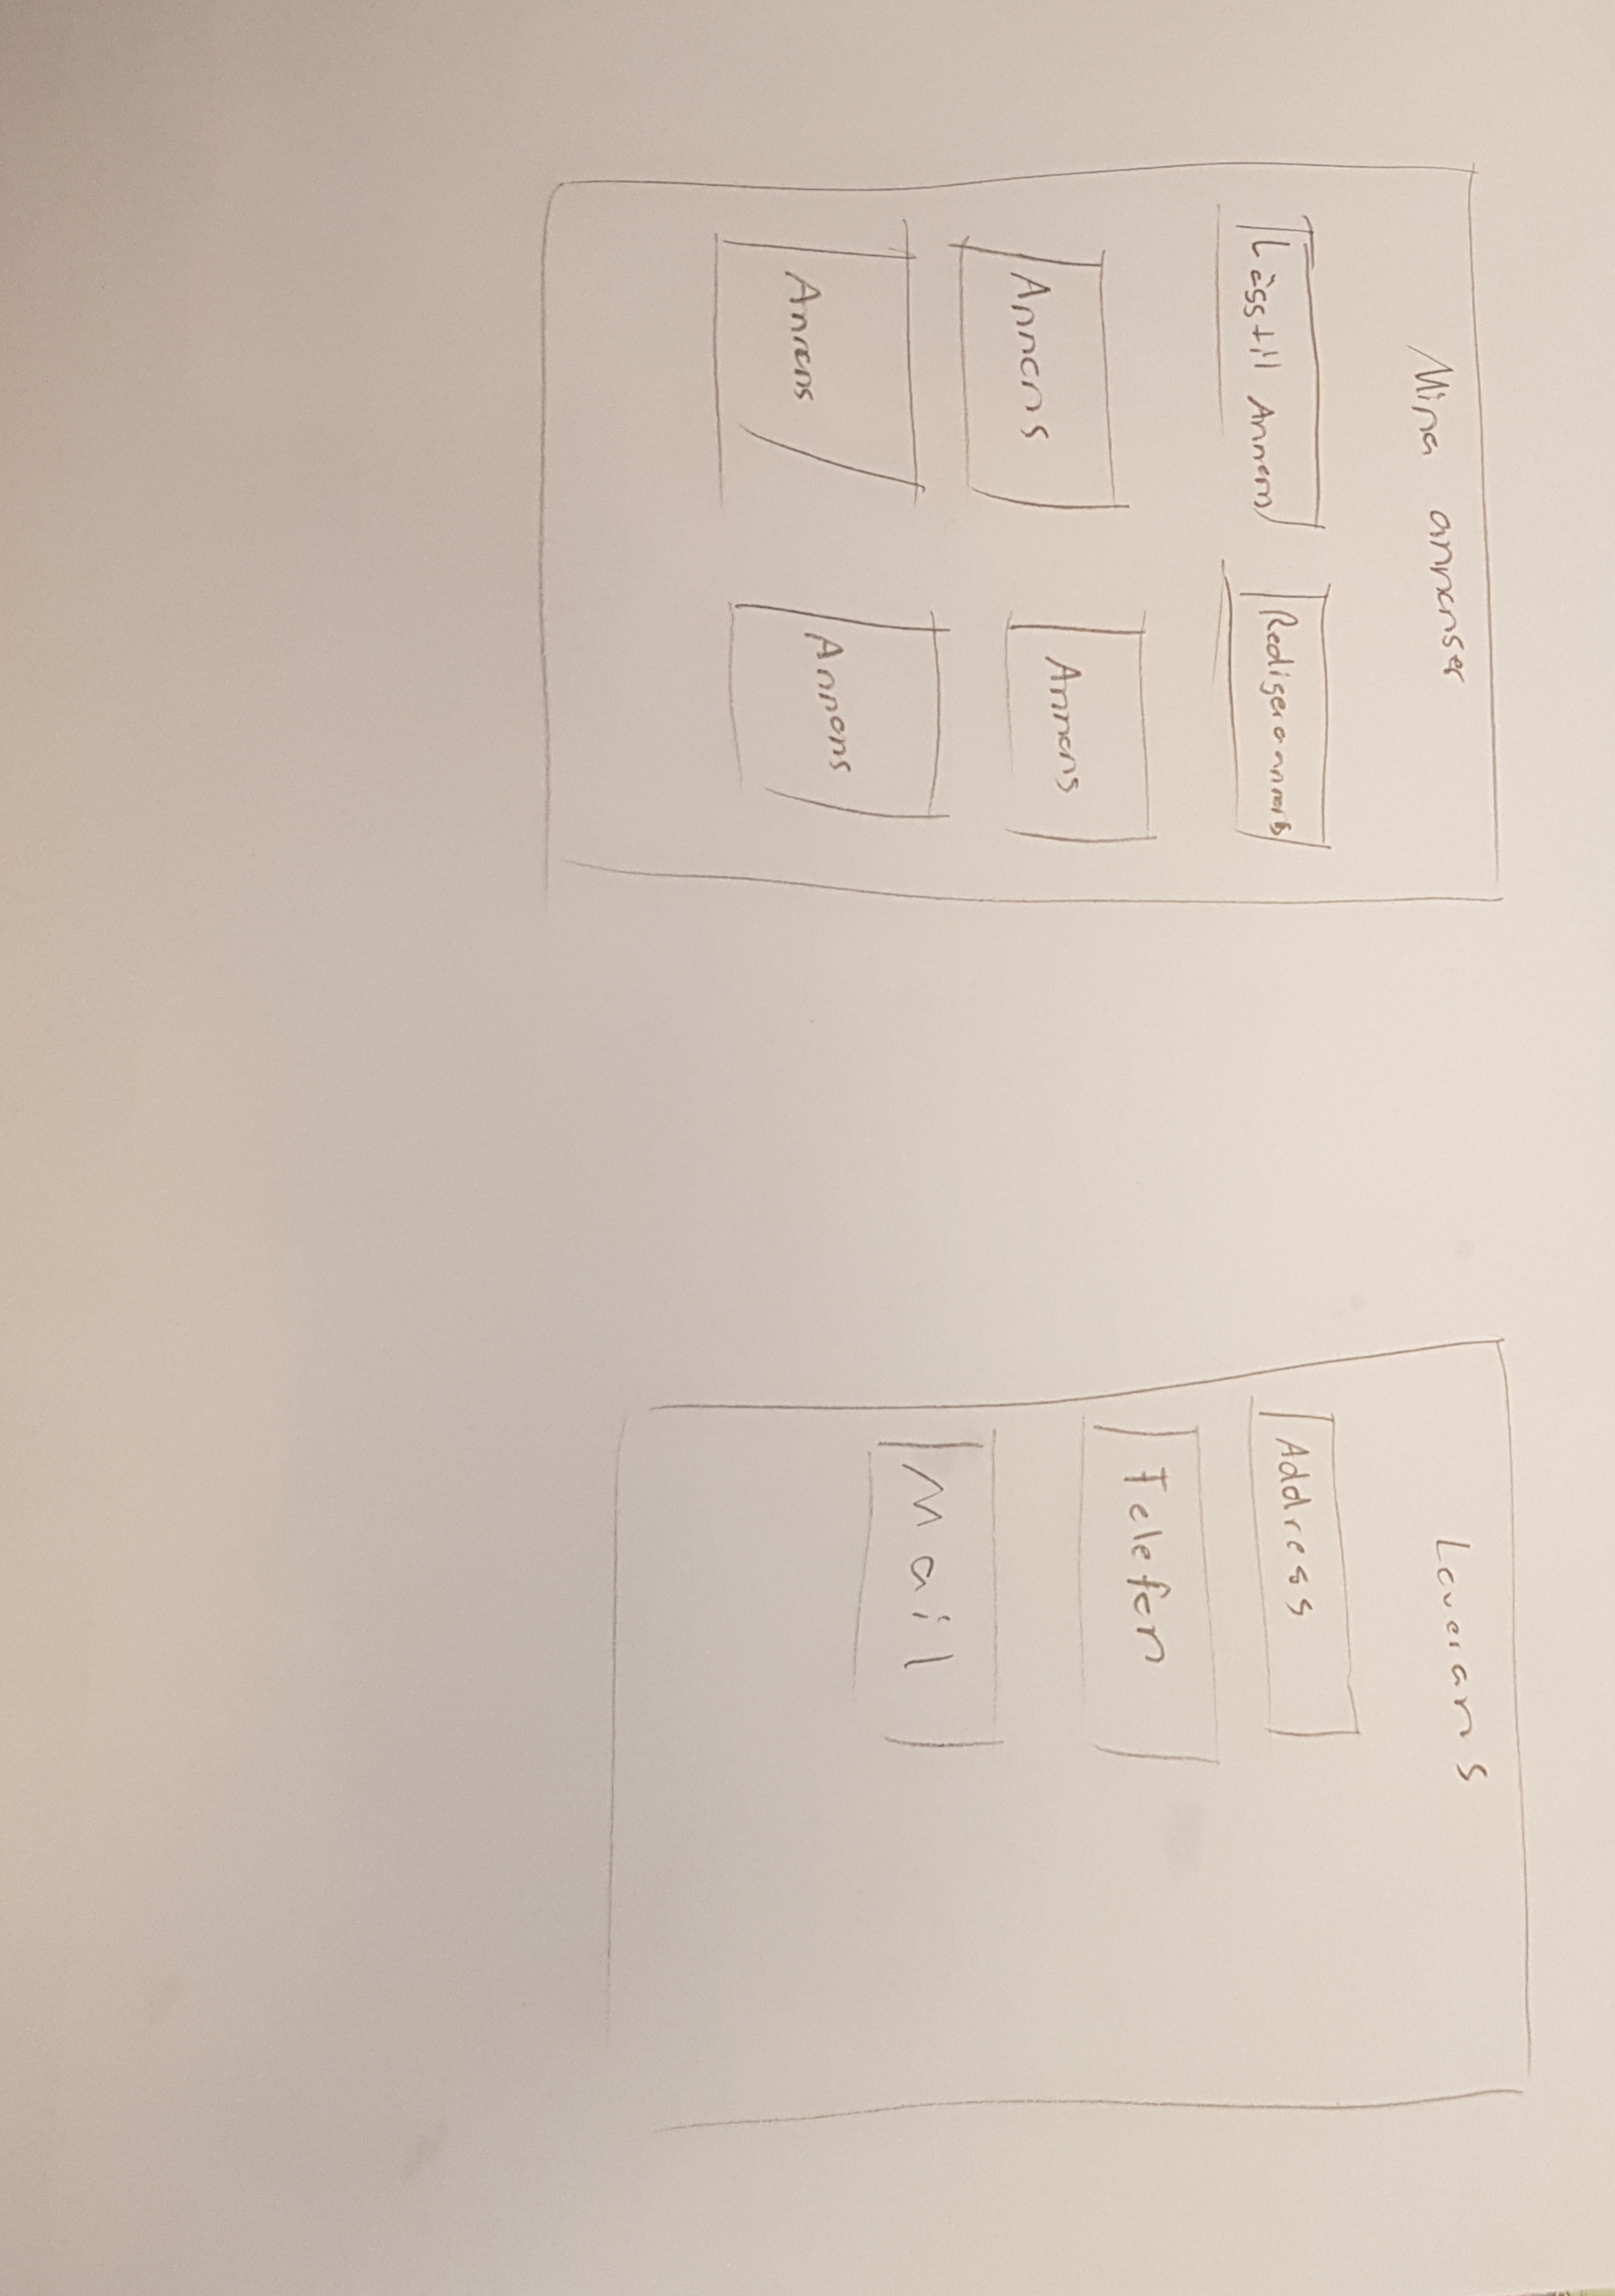 Mina annonser
Läggtill Annons
Redigera annons
Annons
Annons
Annons
Annons
Leverans
Address
Telefon
Mail